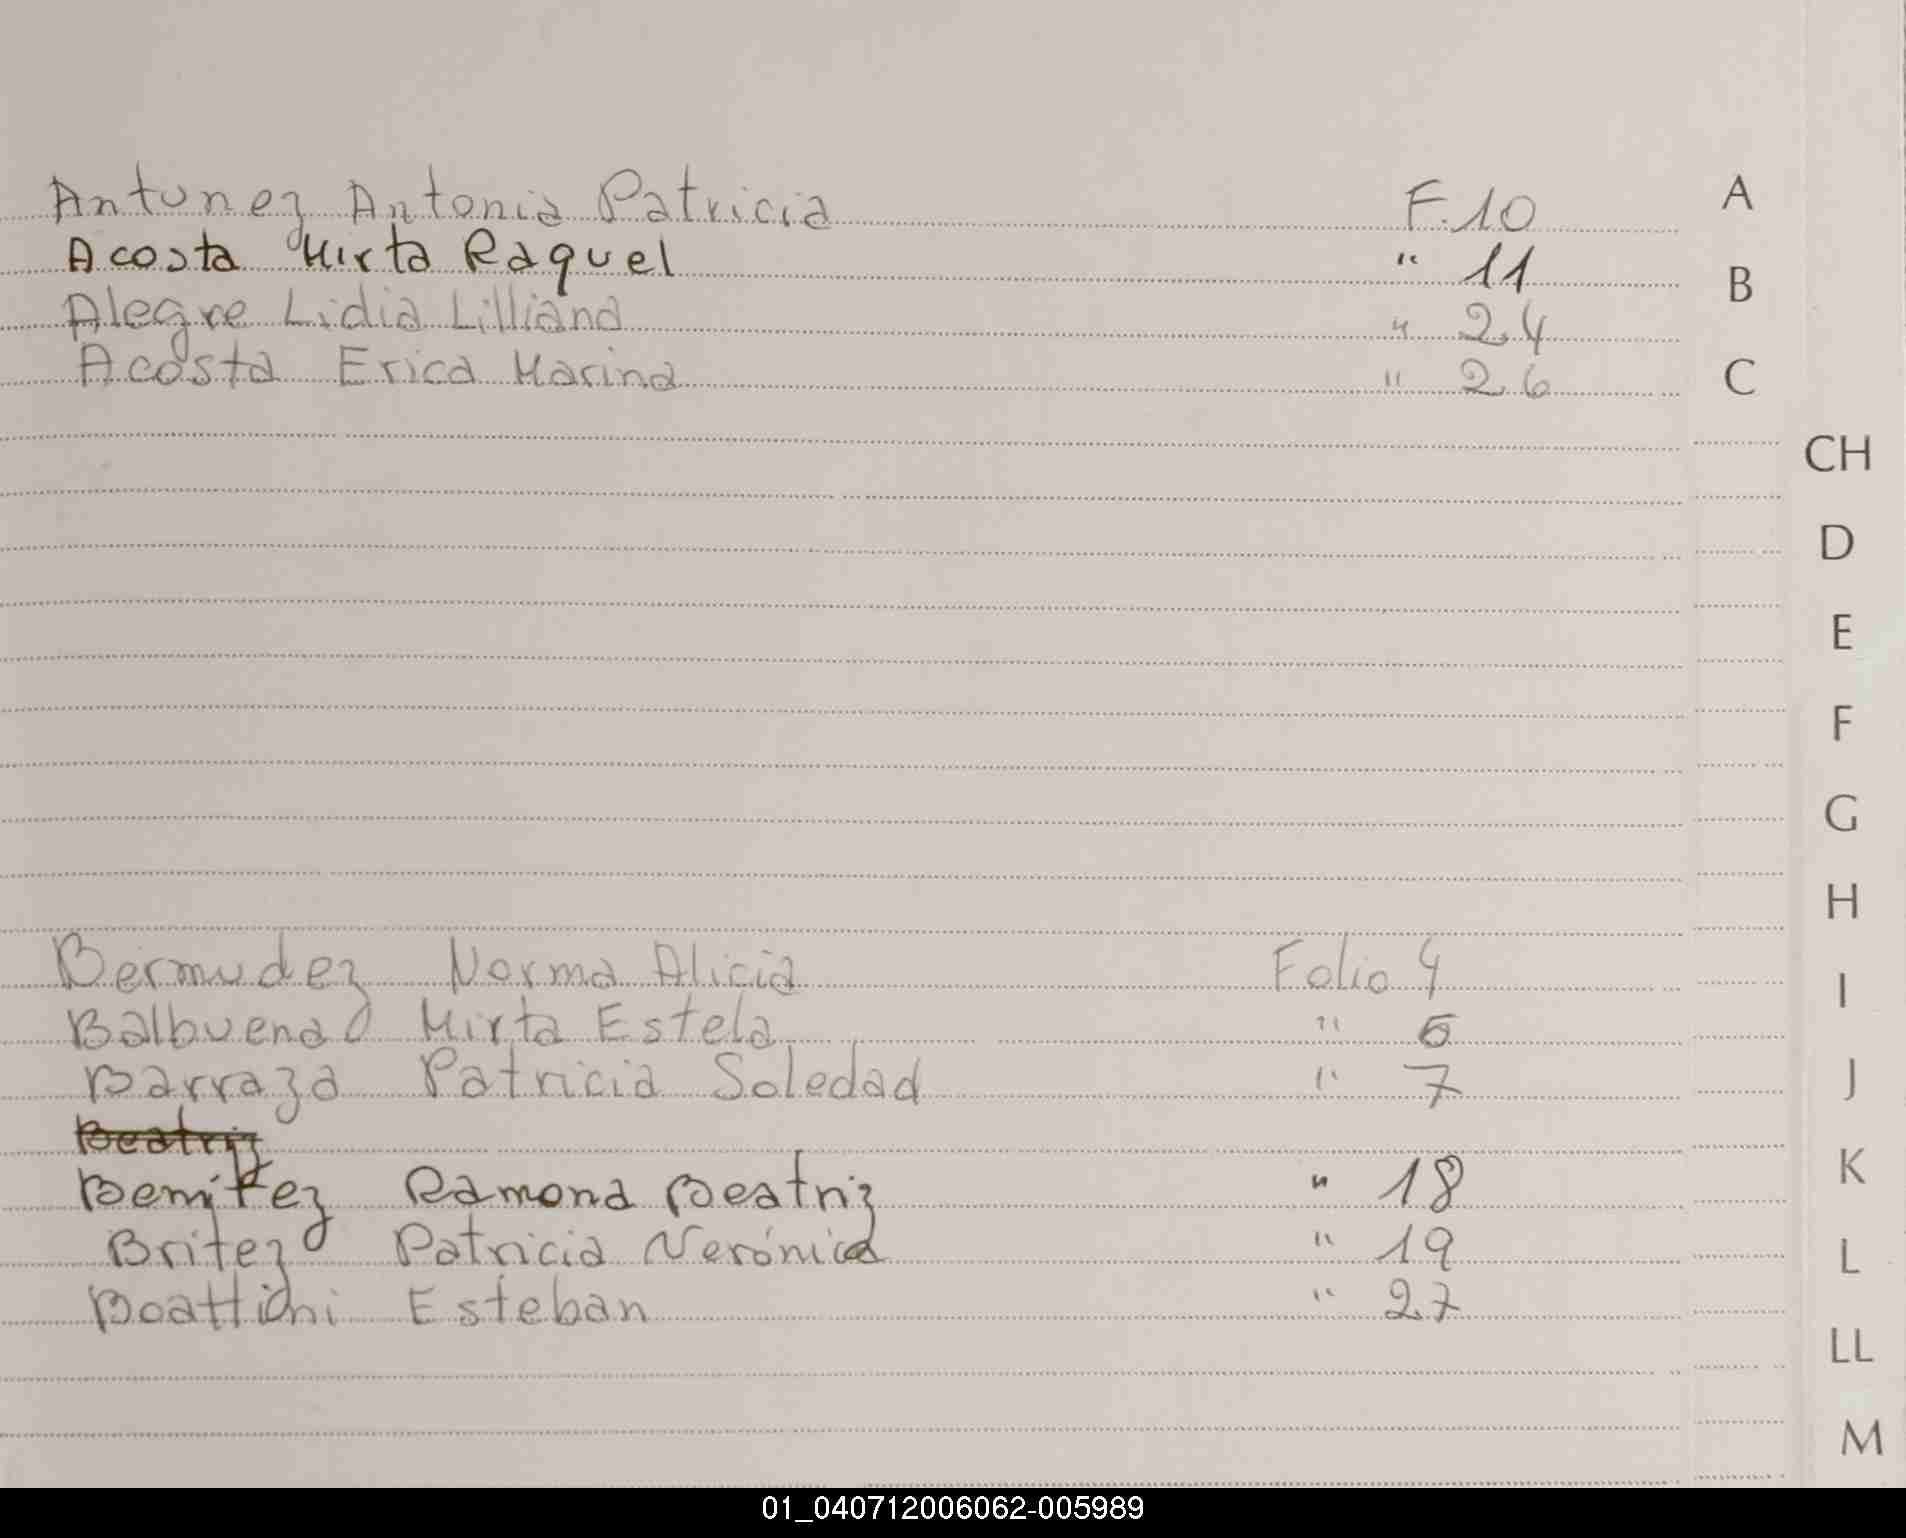 Antunez Antonia Patricia F.10 A
Acosta Mirta Raquel " 11 B
Alegre Lidia Lilliana " 24
Acosta Erica Marina " 26 C
CH
D
E
F
G
H
Bermudez Norma Alicia Folio 4 I
Balbuena Mirta Estela "
Barraza Patricia Soledad " 7 J
Beatriz
Benitez Ramona Beatriz " 18 K
Britez Patricia Verónica " 19 L
Boattioni Esteban " 27
LL
M
01_040712006062-005989